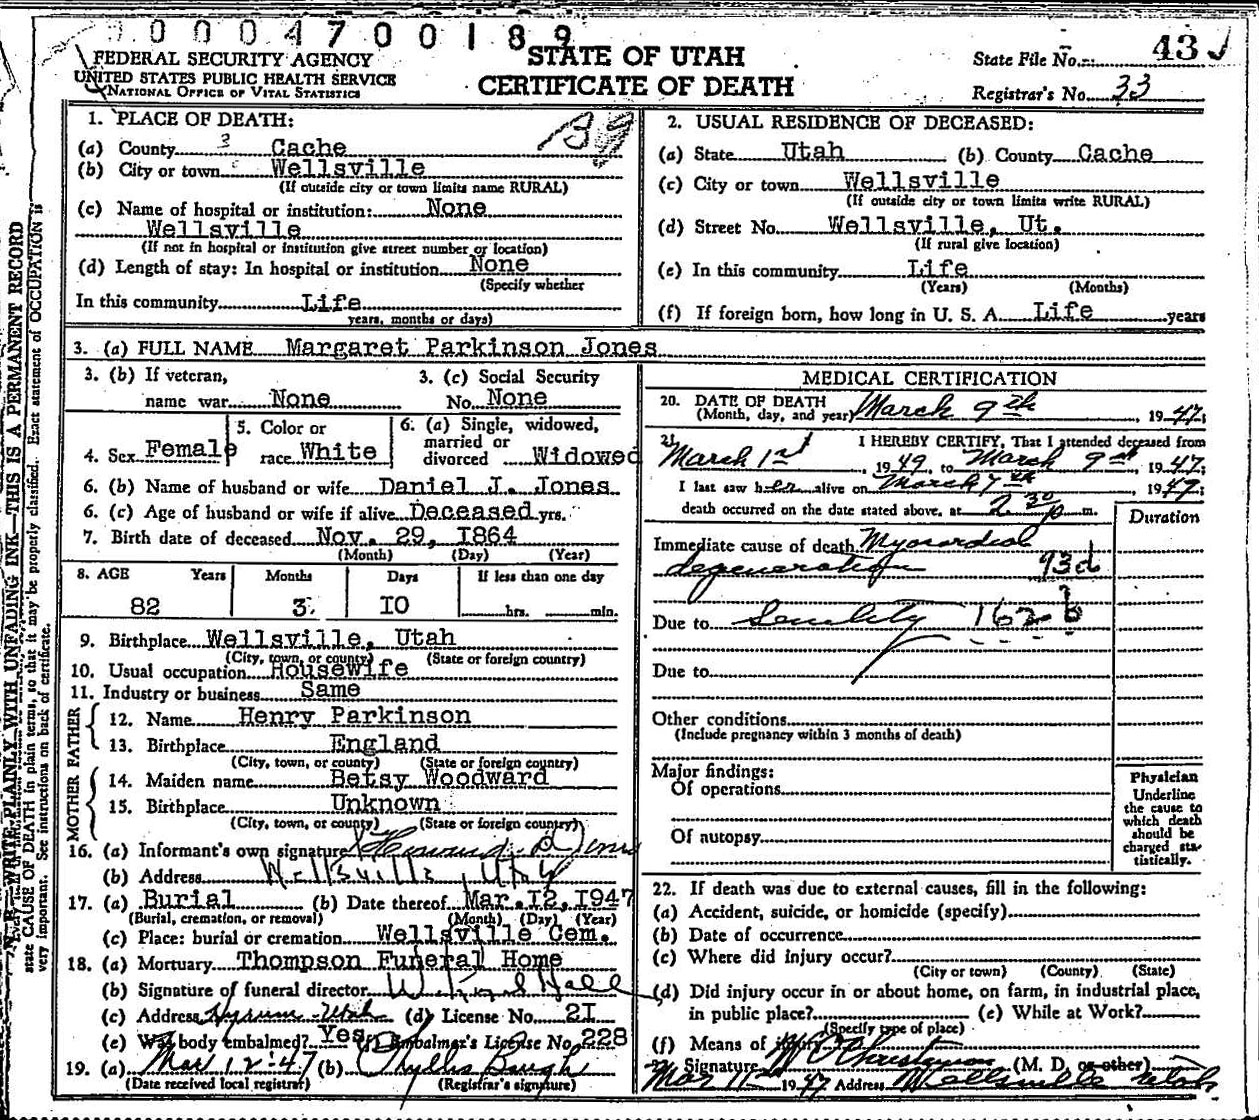 0004700189
FEDERAL SECURITY AGENCY
UNITED STATES PUBLIC HEALTH SERVICE
NATIONAL OFFICE OF VITAL STATISTICS
STATE OF UTAH
CERTIFICATE OF DEATH
State File No. 43
Registrar's No. 33
N. B.—WRITE PLAINLY WITH UNFADING INK—THIS IS A PERMANENT RECORD
state CAUSE OF DEATH in plain terms, so that it may be properly classified. Exact statement of OCCUPATION is
very important. See instructions on back of certificate.
1. PLACE OF DEATH:
39
(a) County 3 Cache
(b) City or town Wellsville
(If outside city or town limits name RURAL)
(c) Name of hospital or institution: None
Wellsville
(If not in hospital or institution give street number or location)
(d) Length of stay: In hospital or institution None
(Specify whether
In this community Life
years, months or days)
2. USUAL RESIDENCE OF DECEASED:
(a) State Utah (b) County Cache
(c) City or town Wellsville
(If outside city or town limits write RURAL)
(d) Street No. Wellsville, Ut.
(If rural give location)
(e) In this community Life
(Years) (Months)
(f) If foreign born, how long in U. S. A. Life years
3. (a) FULL NAME Margaret Parkinson Jones
3. (b) If veteran, 3. (c) Social Security
name war None No. None
4. Sex Female 5. Color or race White 6. (a) Single, widowed, married or divorced Widowed
6. (b) Name of husband or wife Daniel J. Jones
6. (c) Age of husband or wife if alive Deceased yrs.
7. Birth date of deceased Nov. 29, I864
(Month) (Day) (Year)
8. AGE Years Months Days If less than one day
82 3 I0 hrs. min.
9. Birthplace Wellsville, Utah
(City, town, or county) (State or foreign country)
10. Usual occupation Housewife
11. Industry or business Same
FATHER
12. Name Henry Parkinson
13. Birthplace England
(City, town, or county) (State or foreign country)
MOTHER
14. Maiden name Betsy Woodward
15. Birthplace Unknown
(City, town, or county) (State or foreign country)
16. (a) Informant's own signature Jones
(b) Address Wellsville, Utah
17. (a) Burial (b) Date thereof Mar. I2, I947
(Burial, cremation, or removal) (Month) (Day) (Year)
(c) Place: burial or cremation Wellsville Cem.
18. (a) Mortuary Thompson Funeral Home
(b) Signature of funeral director W. Hall
(c) Address Hyrum Utah (d) License No. 2I
(e) Was body embalmed? Yes (f) Embalmer's License No. 228
19. (a) Mar 12 47 (b) Phyllis Baugh
(Date received local registrar) (Registrar's signature)
MEDICAL CERTIFICATION
20. DATE OF DEATH
(Month, day, and year) March 9th, 1947;
21. I HEREBY CERTIFY, That I attended deceased from
March 1st, 1949, to March 9th, 1947;
I last saw her alive on March 7th, 1947
death occurred on the date stated above, at 2 30 p m.
Duration
Immediate cause of death Myocardial
degeneration 93d
Due to Senility 162 b
Due to
Other conditions
(Include pregnancy within 3 months of death)
Major findings:
Of operations
Of autopsy
Physician
Underline
the cause to
which death
should be
charged sta-
tistically.
22. If death was due to external causes, fill in the following:
(a) Accident, suicide, or homicide (specify)
(b) Date of occurrence
(c) Where did injury occur?
(City or town) (County) (State)
(d) Did injury occur in or about home, on farm, in industrial place,
in public place? (e) While at Work?
(Specify type of place)
(f) Means of
Signature (M. D. or other)
Mar 1947 Address Wellsville Utah